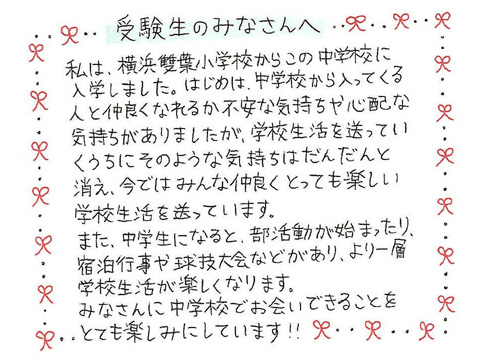 受験生のみなさんへ
私は、横浜雙葉小学校からこの中学校に
入学しました。はじめは、中学校から入ってくる
人と仲良くなれるか不安な気持ちや心配な
気持ちがありましたが、学校生活を送ってい
くうちにそのような気持ちはだんだんと
消え、今ではみんな仲良くとっても楽しい
学校生活を送っています。
また、中学生になると、部活動が始まったり、
宿泊行事や球技大会などがあり、より一層
学校生活が楽しくなります。
みなさんに中学校でお会いできることを
とても楽しみにしています!!